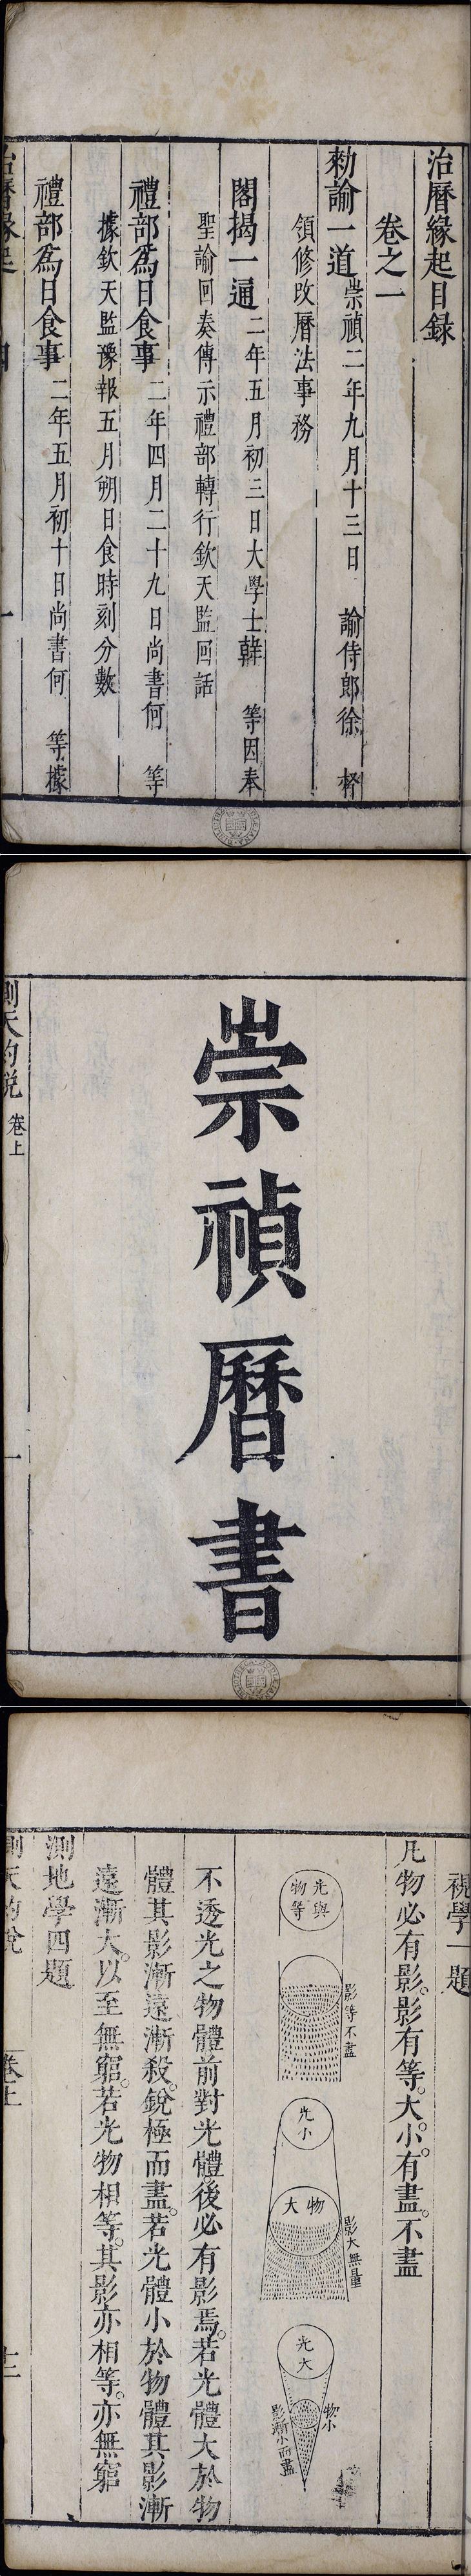 治曆緣起目錄
卷之一
勑諭一道 崇禎二年九月十三日 諭侍郎徐 督
領修改曆法事務
閣揭一通 二年五月初三日大學士韓 等因奉
聖諭回奏傳示禮部轉行欽天監回話
禮部爲日食事 二年四月二十九日尚書何 等
據欽天監豫報五月朔日食時刻分數
禮部爲日食事 二年五月初十日尚書何 等據
治曆緣起 一
崇禎曆書
測天約說 卷上 一
視學一題
凡物必有影。影有等。大。小。有盡。不盡
光與
物等
影等不盡
光
小
物
大
影大無量
光
大
物小
影漸小而盡
不透光之物體前對光體後必有影焉。若光體大於物
體其影漸遠漸殺。銳極而盡。若光體小於物體其影漸
遠漸大。以至無窮。若光物相等。其影亦相等。亦無窮
測地學四題
測天約說 卷上